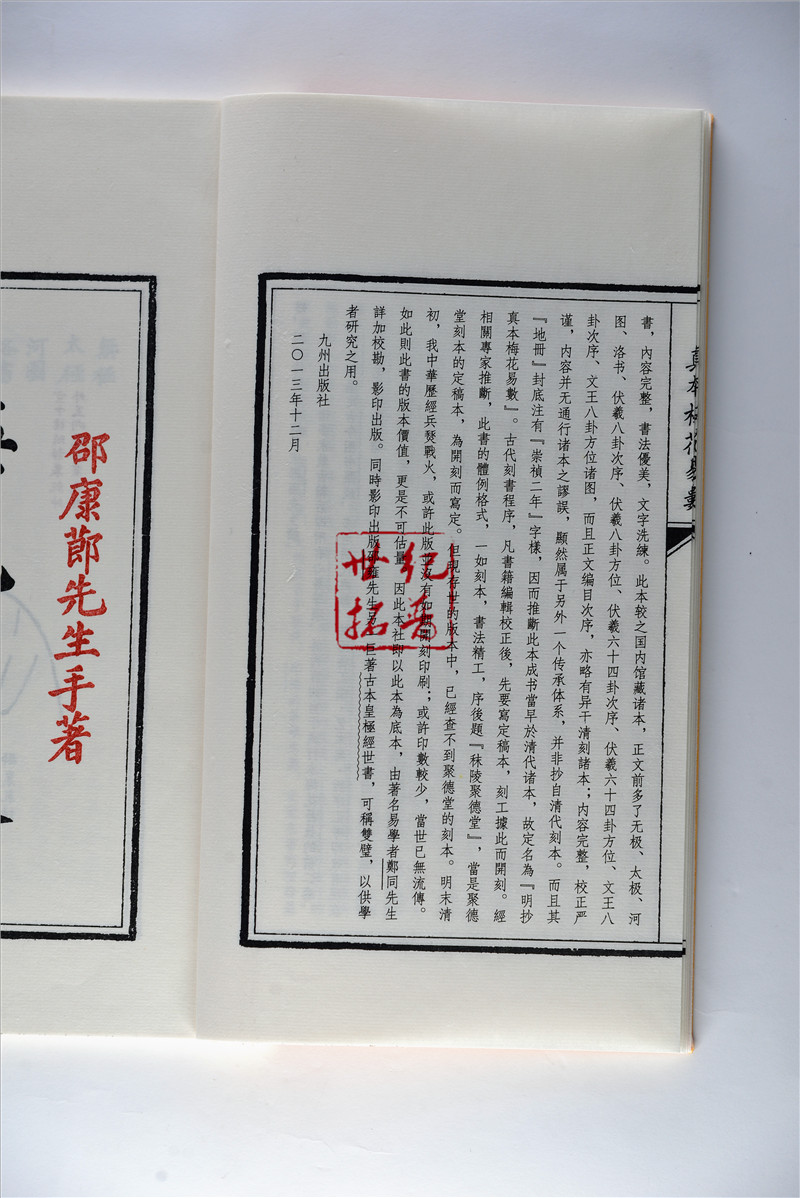 真本梅花易數
書，內容完整，書法優美，文字洗練。此本较之国内馆藏诸本，正文前多了无极、太极、河
图、洛书、伏羲八卦次序、伏羲八卦方位、伏羲六十四卦次序、伏羲六十四卦方位、文王八
卦次序、文王八卦方位诸图，而且正文编目次序，亦略有异于清刻諸本；内容完整，校正严
谨，内容并无通行诸本之謬誤，顯然属于另外一个传承体系，并非抄自清代刻本。而且其
『地冊』封底注有『崇禎二年』字樣，因而推斷此本成书當早於清代诸本，故定名為『明抄
真本梅花易數』。古代刻書程序，凡書籍編輯校正後，先要寫定稿本，刻工據此而開刻。經
相關專家推斷，此書的體例格式，一如刻本，書法精工，序後題『秣陵聚德堂』，當是聚德
堂刻本的定稿本，為開刻而寫定。但現存世的版本中，已經查不到聚德堂的刻本。明末清
初，我中華歷經兵燹戰火，或許此版並沒有如期開刻印刷；或許印數較少，當世已無流傳。
如此則此書的版本價值，更是不可估量。因此本社即以此本為底本，由著名易學者鄭同先生
詳加校勘，影印出版。同時影印出版邵雍先生另一巨著古本皇極經世書，可稱雙璧，以供學
者研究之用。
九州出版社
二〇一三年十二月
紀委
世拓
邵康節先生手著